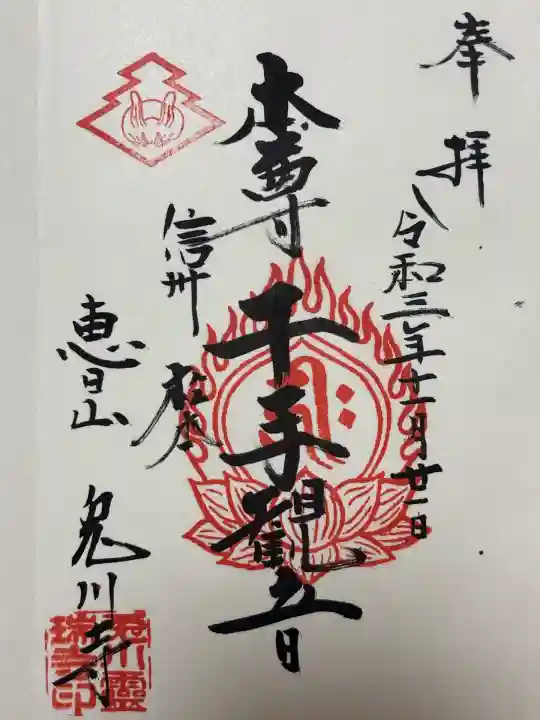 奉拝
令和三年十一月廿一日
本尊
千手観音
信州
松本
恵日山
兎川寺